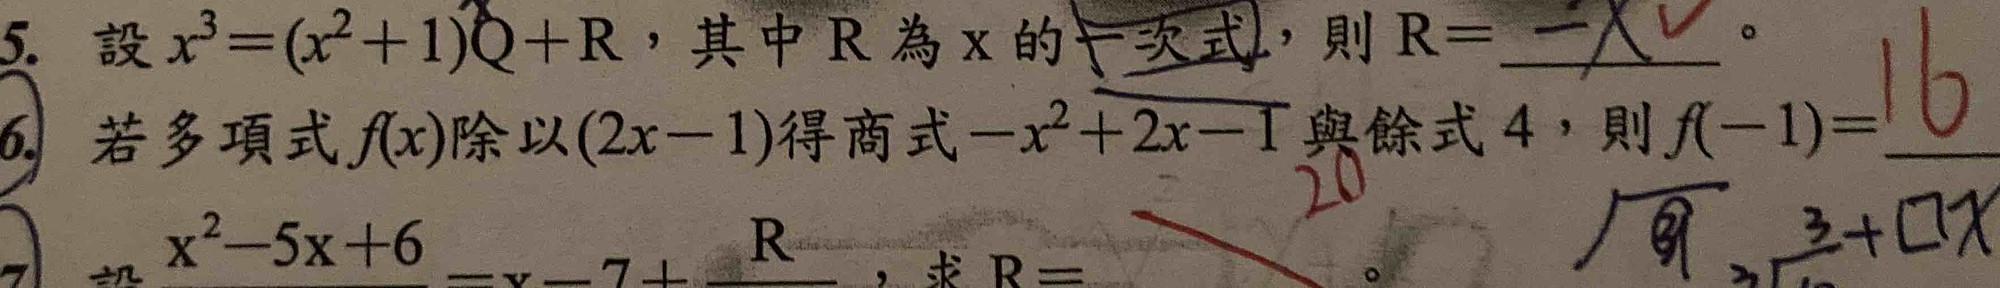 5. 設 x³=(x²+1)Q+R，其中 R 為 x 的一次式，則 R= -x ✓ 。
6. 若多項式 f(x)除以(2x-1)得商式-x²+2x-1 與餘式 4，則 f(-1)= 16
20
3+□x
7 設 x²-5x+6 =x-7+ R ，求 R= 。